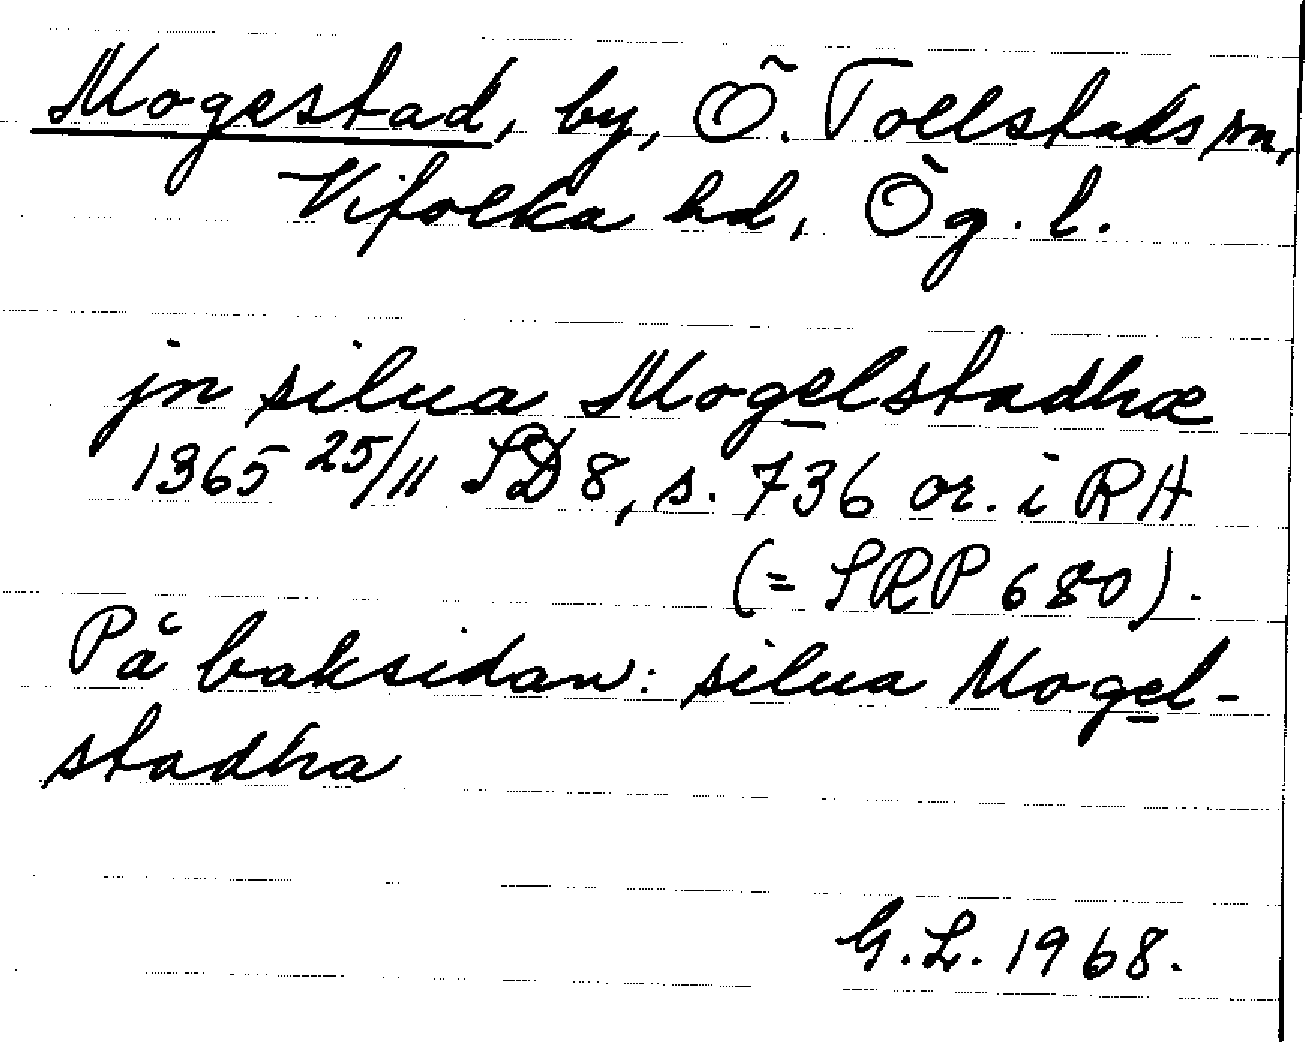 Mogestad, by, Ö. Tollstads sn,
Vifolka hd, Ög. l.
jn silua Mogelstadhæ
1365 25/11 SD 8, s. 736 or. i RA
(= SRP 680).
På baksidan: silua Mogel-
stadha
G. L. 1968.